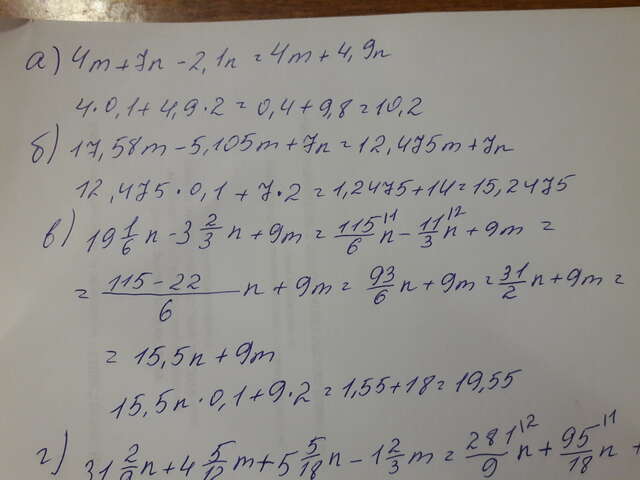 а) 4m+7n-2,1n=4m+4,9n
4·0,1+4,9·2=0,4+9,8=10,2
б) 17,58m-5,105m+7n=12,475m+7n
12,475·0,1+7·2=1,2475+14=15,2475
в) 19 1/6 n - 3 2/3 n + 9m = 115/6 \1 n - 11/3 \2 n + 9m =
= (115-22)/6 n + 9m = 93/6 n + 9m = 31/2 n + 9m =
= 15,5n+9m
15,5n·0,1+9·2=1,55+18=19,55
г) 31 2/9 n + 4 5/12 m + 5 5/18 n - 1 2/3 m = 281/9 \2 n + 95/18 \1 n +